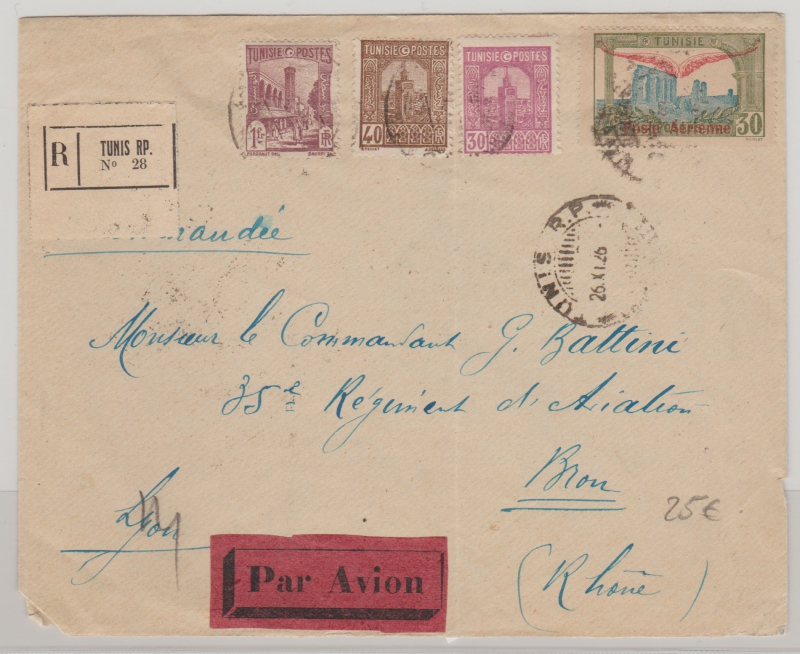 TUNISIE POSTES
1F RF
TUNISIE POSTES
40
TUNISIE POSTES
30
TUNISIE
Poste Aérienne 30
R TUNIS RP.
No 28
mandée
TUNIS R.P.
26.XI.26
Monsieur le Commandant G. Battini
35e Régiment d'Aviation
Bron
Lyon
25€
Par Avion
(Rhône)